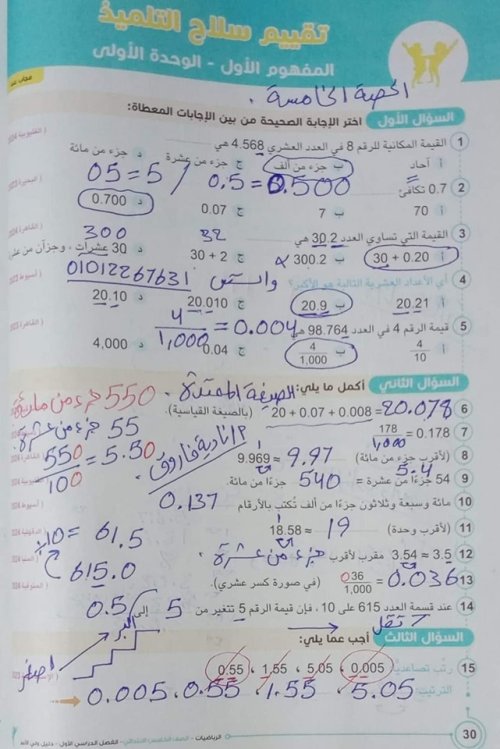 تقييم سلاح التلميذ
المفهوم الأول - الوحدة الأولى
الحصة الخامسة .
السؤال الأول اختر الإجابة الصحيحة من بين الإجابات المعطاة:
1 القيمة المكانية للرقم 8 في العدد العشري 4.568 هي
أ آحاد ب جزء من ألف ج جزء من عشرة د جزء من مائة
05 = 5 / 0.5 = 0.500
2 0.7 تكافئ
أ 70 ب 7 ج 0.07 د 0.700
3 القيمة التي تساوي العدد 30.2 هي 32 300
أ 30 + 0.20 ب 300.2 ج 30 + 2 د 30 عشرات ، وجزآن من
4 أي الأعداد العشرية التالية هو الأكبر؟ واتس 01012267631
أ 20.21 ب 20.9 ج 20.010 د 20.10
5 قيمة الرقم 4 في العدد 98.764 4/1,000 = 0.004
أ 4/10 ب 4/1,000 ج 0.04 د 4,000
السؤال الثاني أكمل ما يلي: الصيغة الممتدة . 550 جزء من مائة
6 20 + 0.07 + 0.008 = 20.078 (بالصيغة القياسية).
7 0.178 = 178/1,000
55 جزء من عشرة
550/100 = 5.50
م/ نادية فاروق
8 9.969 ≈ 9.97 (لأقرب جزء من مائة)
5.4
9 54 جزءًا من عشرة = 540 جزءًا من مائة.
10 مائة وسبعة وثلاثون جزءًا من ألف تُكتب بالأرقام 0.137
11 18.58 ≈ 19 (لأقرب وحدة)
÷10 = 61.5
12 3.54 ≈ 3.5 مقرب لأقرب جزء من عشرة .
615.0
13 0.036 = 036/1,000 (في صورة كسر عشري).
14 عند قسمة العدد 615 على 10 ، فإن قيمة الرقم 5 تتغير من 5 إلى 0.5
تقل
السؤال الثالث أجب عما يلي:
أكبر
أصغر
15 رتب تصاعديًا: 0.005 ، 5.05 ، 1.55 ، 0.55
الترتيب: 0.005 ، 0.55 ، 1.55 ، 5.05
30 الرياضيات - الصف الخامس الابتدائي - الفصل الدراسي الأول - دليل ولي الأمر